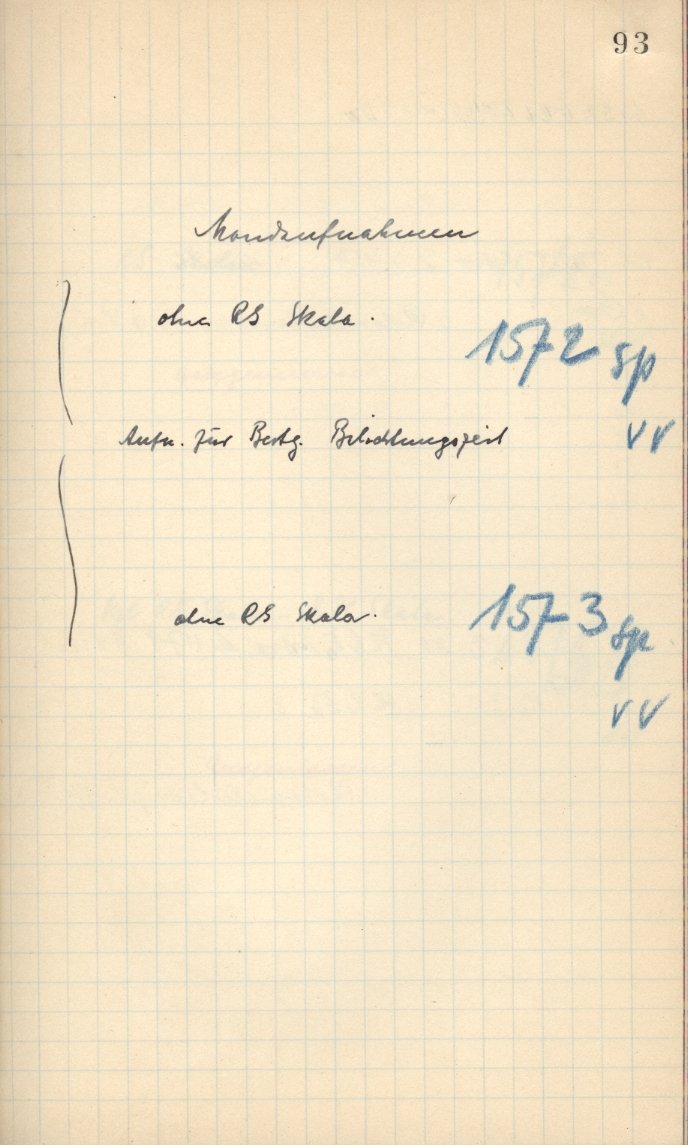 93
Mondaufnahmen
ohne RS Skala.
1572 Sp
Aufn. für Bestg. Belichtungszeit
vv
ohne RS Skala.
1573 Sp
vv